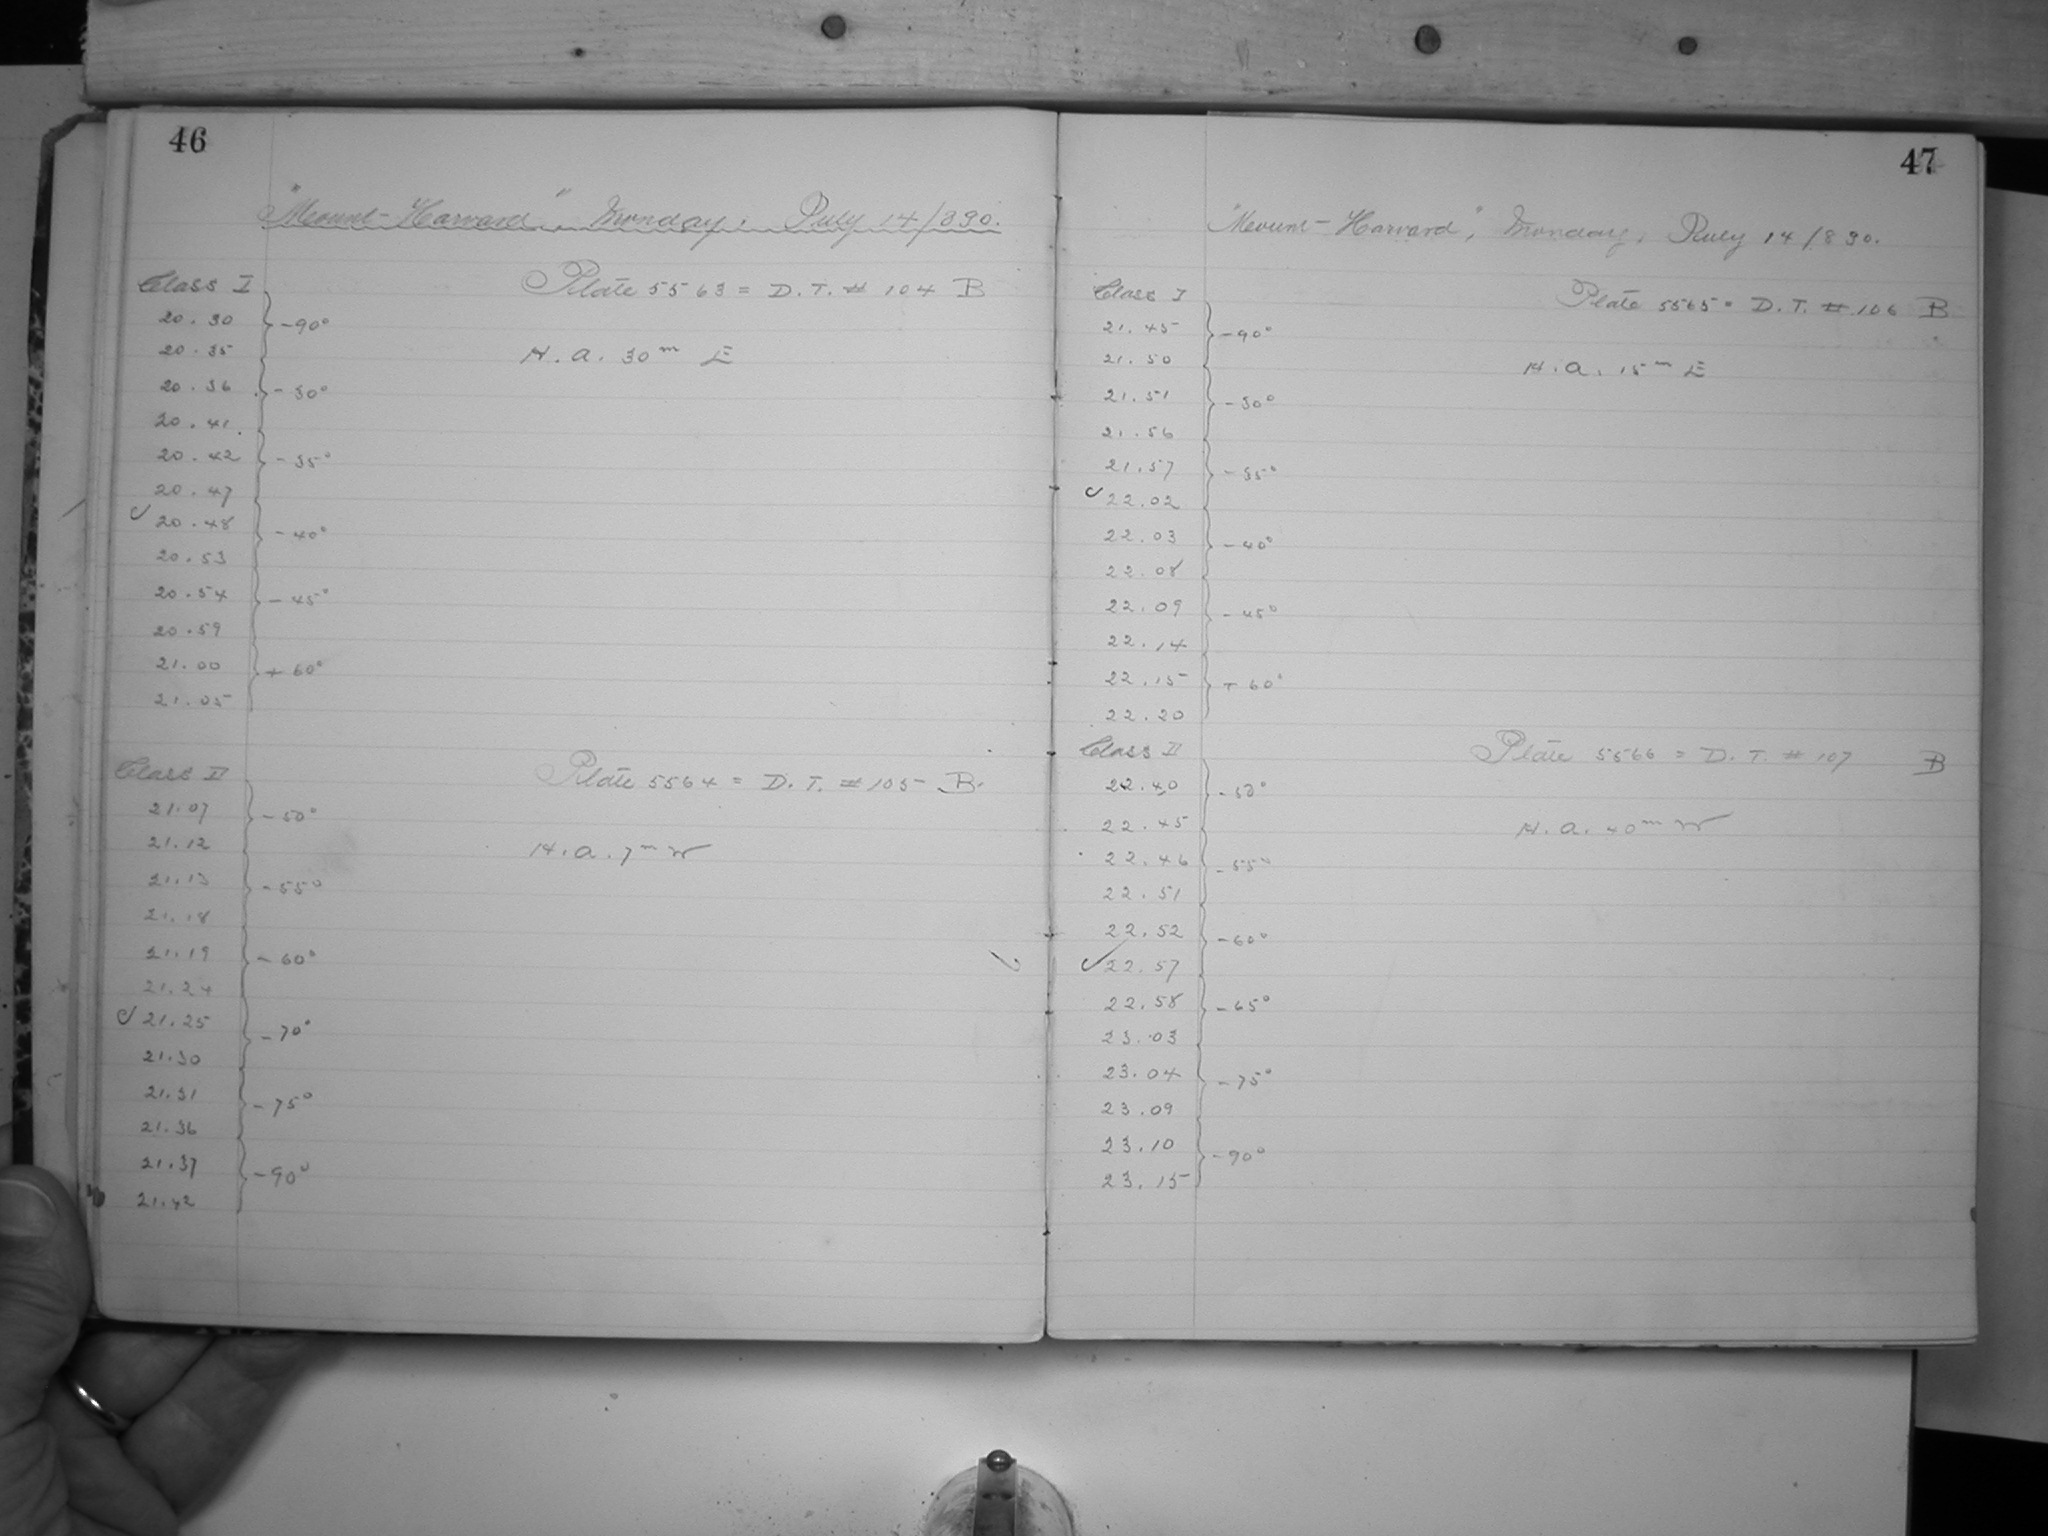 46
"Mount-Harvard", Monday, July 14/890.
Class I
Plate 5563 = D.T. # 104 B
20.30
-90°
20.35
H.a. 30m E
20.36
-30°
20.41
20.42
-35°
20.47
20.48
-40°
20.53
20.54
-45°
20.59
21.00
+60°
21.05
Class II
Plate 5564 = D.T. # 105 B.
21.07
-50°
21.12
H.a. 7m W
21.13
-55°
21.18
21.19
-60°
21.24
21.25
-70°
21.30
21.31
-75°
21.36
21.37
-90°
21.42
47
"Mount-Harvard", Monday, July 14/890.
Class I
Plate 5565 = D.T. # 106 B
21.45
-90°
21.50
H.a. 15m E
21.51
-30°
21.56
21.57
-35°
22.02
22.03
-40°
22.08
22.09
-45°
22.14
22.15
+60°
22.20
Class II
Plate 5566 = D.T. # 107 B
22.40
-50°
22.45
H.a. 40m W
22.46
-55°
22.51
22.52
-60°
22.57
22.58
-65°
23.03
23.04
-75°
23.09
23.10
-90°
23.15